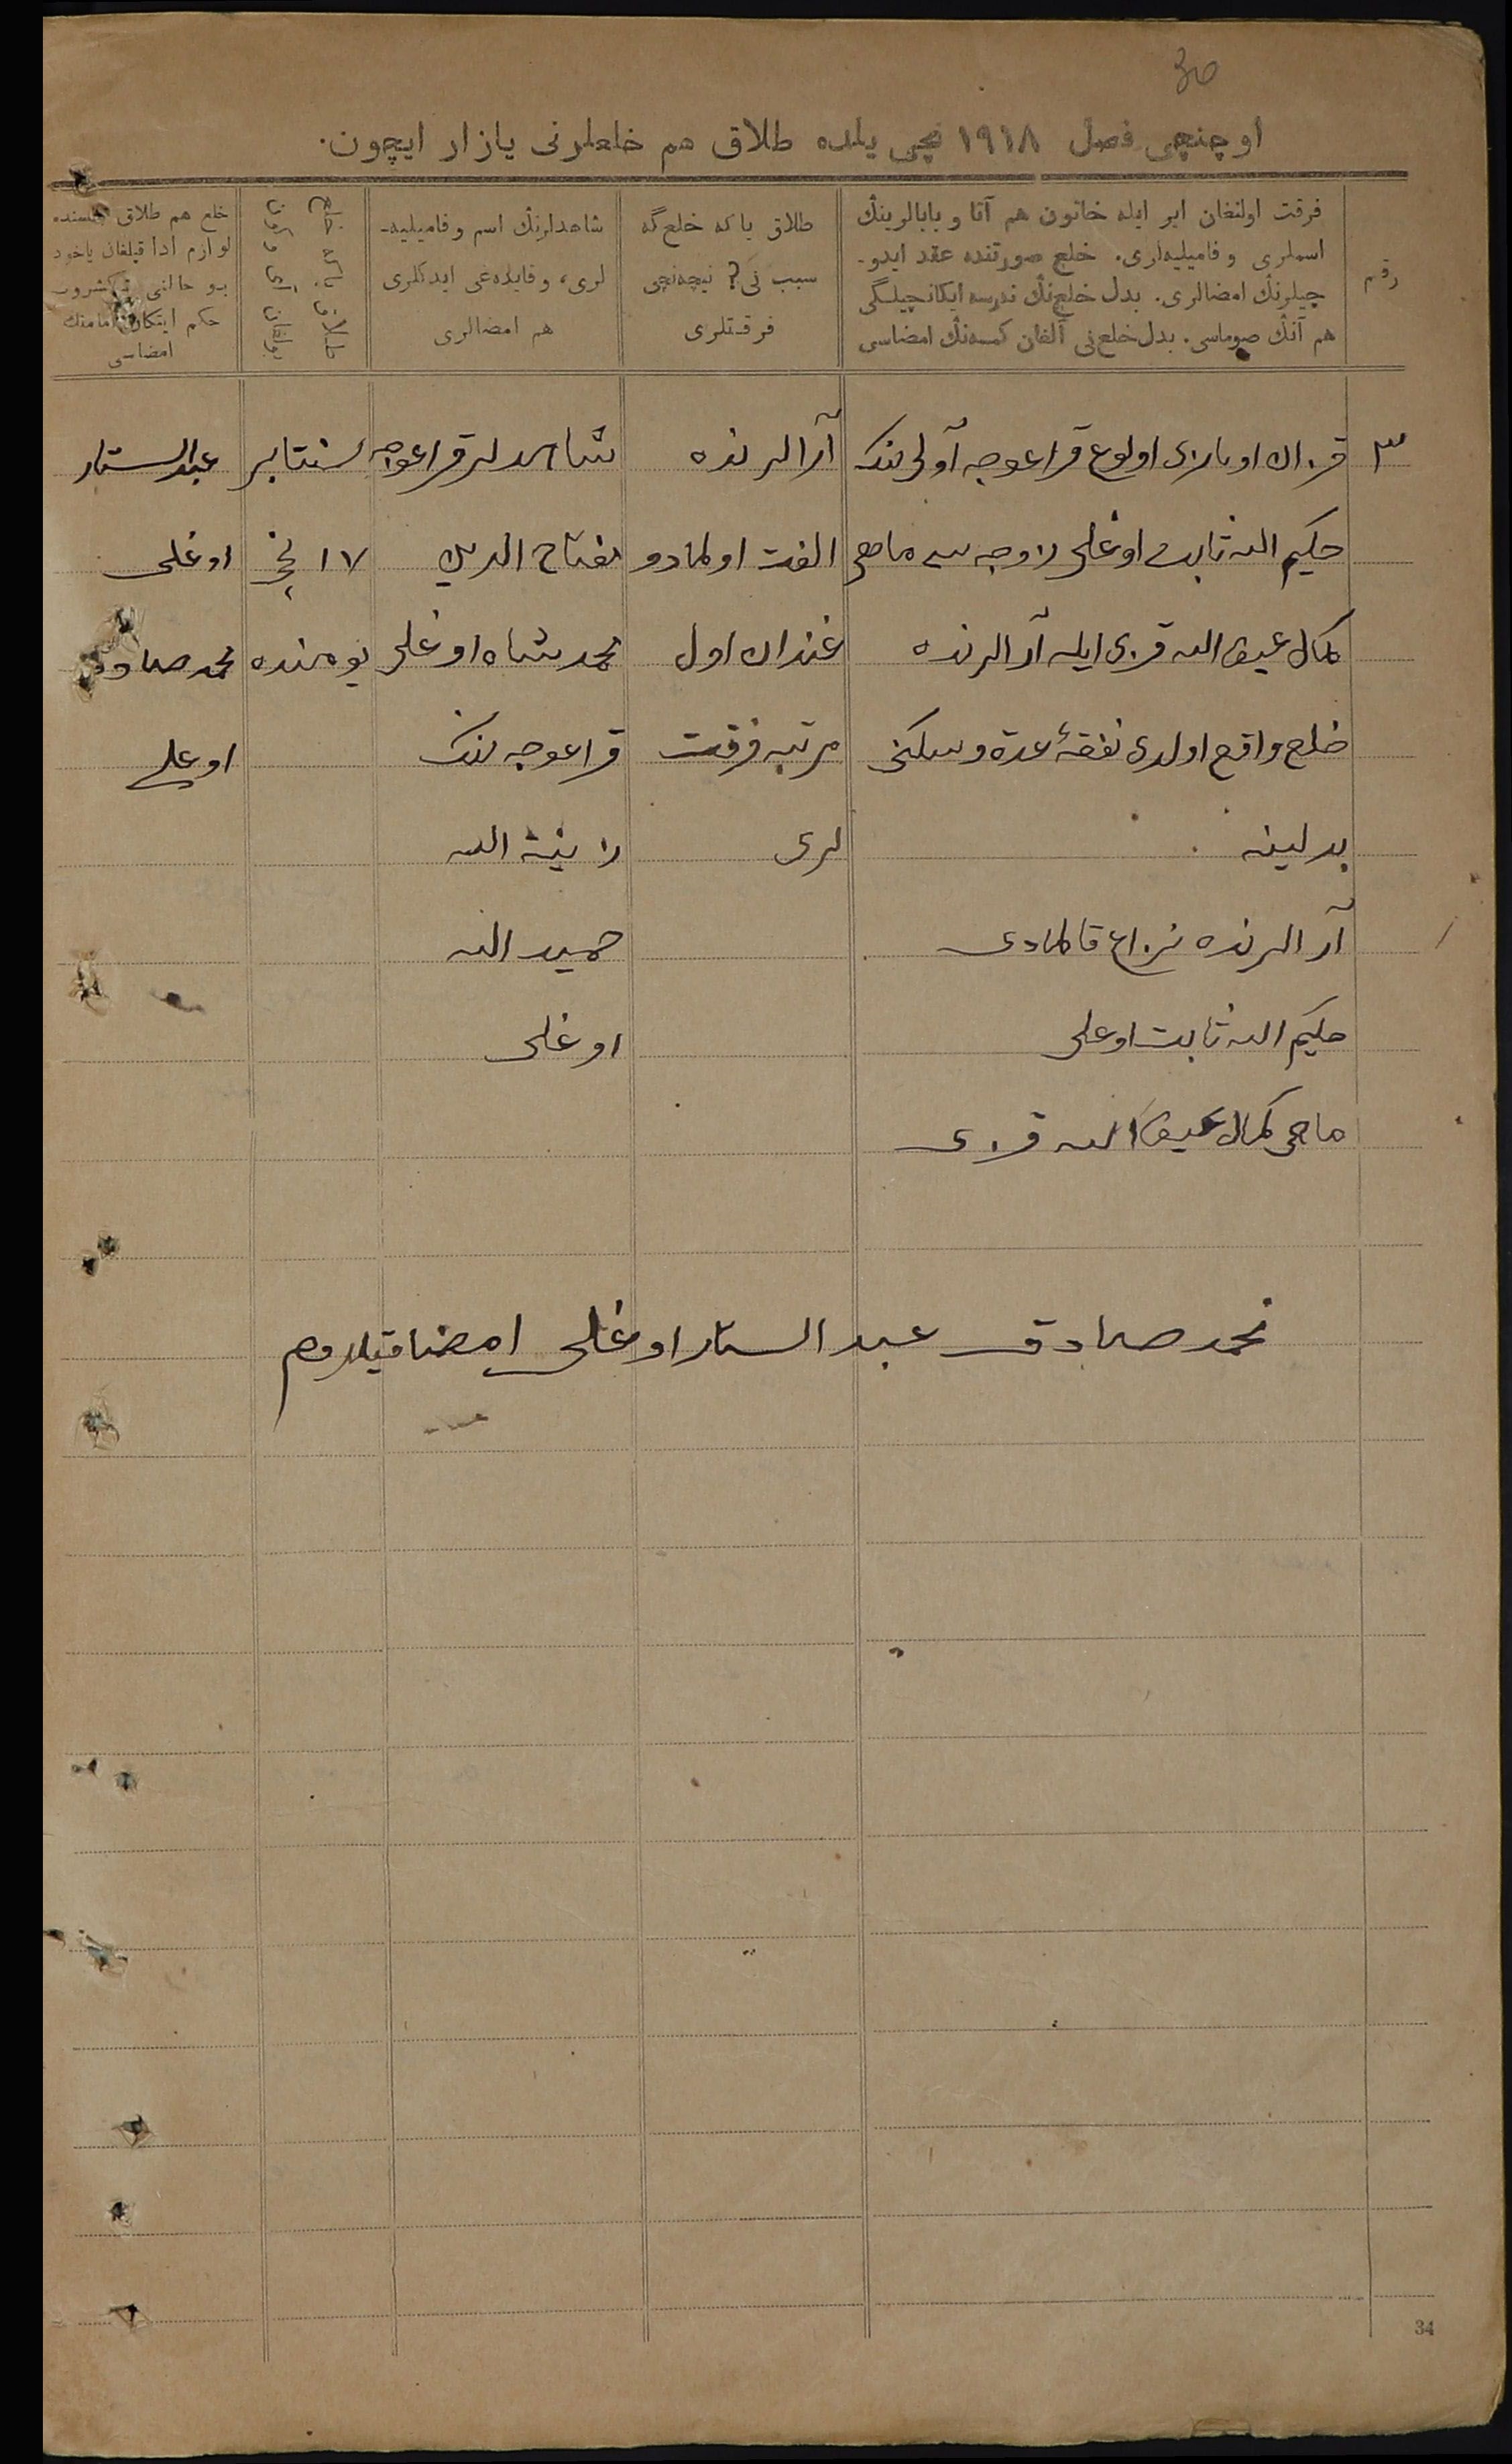 36
اوچنچی فصل ۱۹۱۸ نچی یلده طلاق هم خلعلرنی یازار ایچون.
رقم
فرقت اولنغان ایر ایله خاتون هم آتا و بابالرینڭ
اسملری و فامیلیه‌لری. خلع صورتنده عقد ایدو-
چیلرنڭ امضالری. بدل خلع‌نڭ ندرسه ایکانچیلگی
هم آنڭ صوماسی. بدل خلع‌نی آلغان کمسه‌نڭ امضاسی
طلاق یاکه خلع گه
سبب نی؟ نیچه‌نچی
فرقتلری
شاهدلرنڭ اسم و فامیلیه-
لری، وقایله‌غی ایدکلری
هم امضالری
خلع هم طلاق
لوازم ادا قیلغان یاخود
بو حالنی
حکم ایتکان امامنڭ
امضاسی
۳
قزان اویازی اولوغ قراعوجه آولی ننک
حکیم الله ثابت اوغلی زوجه سی ماهی
کمال الله قزی ایله آرالرنده
خلع واقع اولدی نفقهٔ عدة وسکنی
بدلینه
آرالرنده نزاع قالمادی
حکیم الله ثابت اوغلی
ماهی کمال الله قزی
آرالرنده
الفت اولمادو
غندان اول
مرتبه فرقت
لری
شاهدلر قراعوجه
مفتاح الدین
محمدشاه اوغلی
قراعوجه ننک
زینة الله
حمید الله
اوغلی
سنتابر
۱۷ نچی
یومنده
عبدالستار
اوغلی
محمد صادق
اوغلی
محمد صادق عبدالستار اوغلی امضا قیلدوم
34